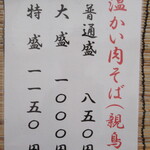 温かい肉そば(親鳥
普通盛 八五〇円
大盛 一〇〇〇円
特盛 一一五〇円